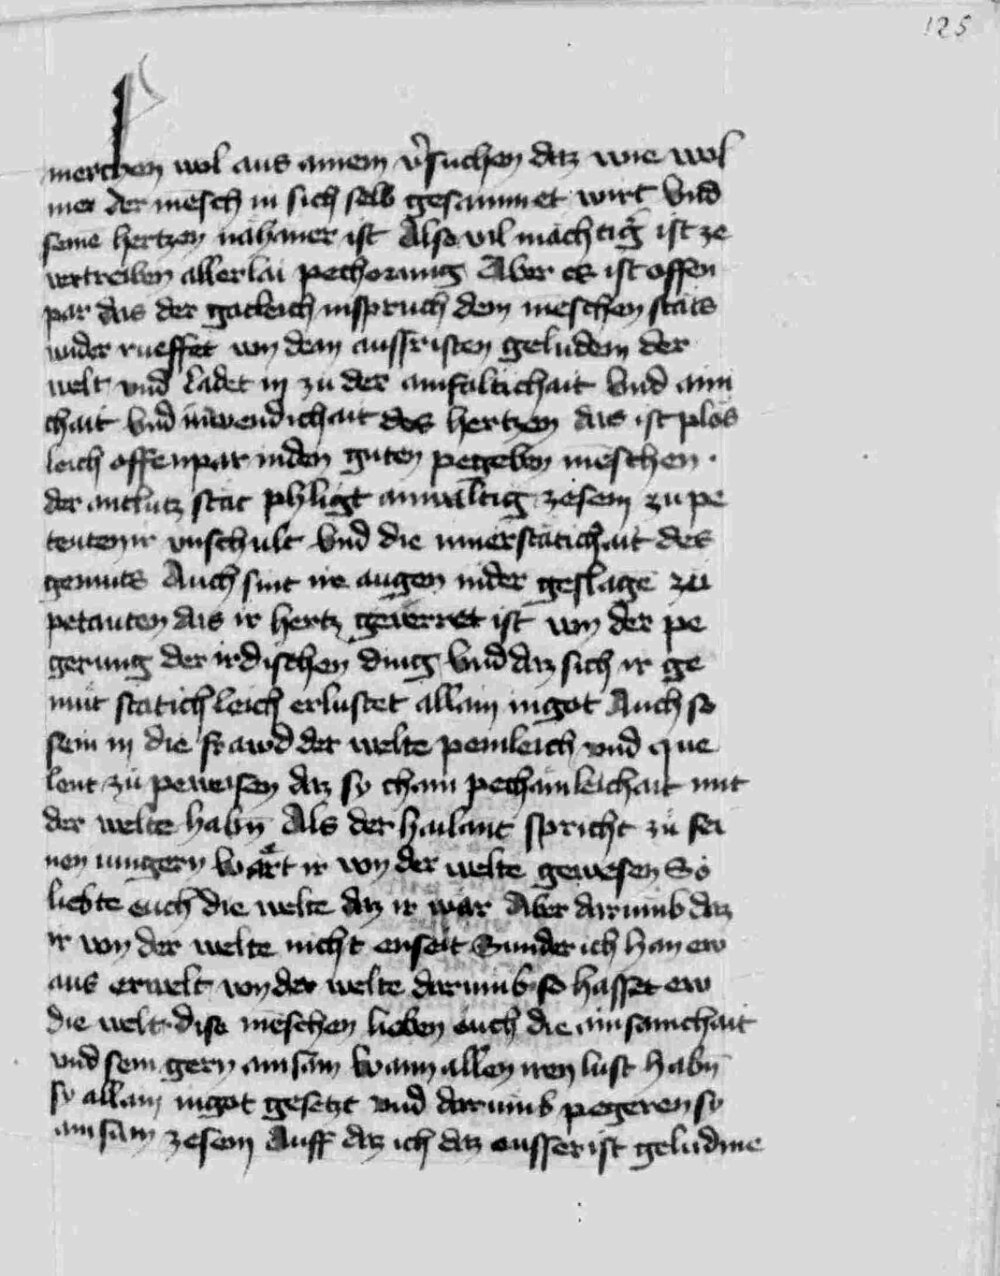 125
merchen wol aus ainem v̉suchen daz wie wol
mer der mēsch in sich selb gesammet wirt vnd
seinē hertzen nahaner ist Also vil mächtig̉ ist ze
vertreiben allerlai pechorunig Aber es ist offen
par das der gotleich inspruch dem meschen stäts
wider rueffet von dem aussristen geludem der
welt vnd ladet in zu der ainfaltichait vnd aini
chait vnd inwendichait des hertzen das ist plos
leich offenpar inden guten pegeben mēschen ·
der antlutz stät phligt ainualtig zesein zu pe
teuten ir vnschult vnd die innerstätichait des
gemuts Auch sint ire augen nider geslagē zü
petäuten das ir hertz geuerret ist von der pe
gerung der irdischen ding vnd daz sich ir ge
müt stätichleich erlustet allain ingot Auch so
sein in die frawd der welte peinleich vnd que
lent zü peweisen daz sy chain pechainleichait mit
der welte habn̄ Als der hailant spricht zü sei
nen iungern wärt ir von der welte gewesen So
liebte euch die welte daz ir wär Aber darumb daz
ir von der welte nicht enseit Sunder ich han ew
aus erwelt von der welte darumb so hasset ew
die welt dise mēschen lieben auch die ainsamchait
vnd sein gern ainsam wann allen iren lust habn̄
sy allain ingot gesetzt vnd darumb pegeren sy
ainsam zesein Auff daz ich daz ausserist geludme